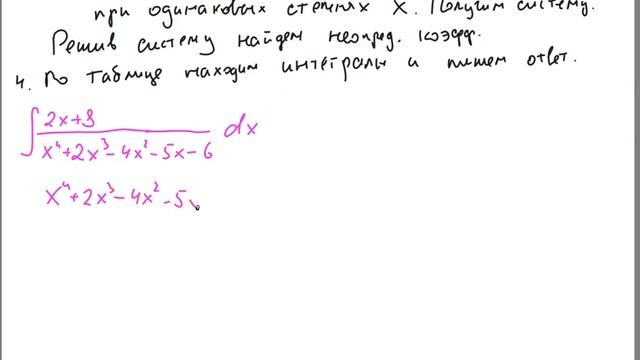 при одинаковых степнях X. Получим систему.
Решив систему найдем неопред. коэфф.
4. По таблице находим интегралы и пишем ответ.
∫ (2x+3)/(x⁴+2x³-4x²-5x-6) dx
x⁴+2x³-4x²-5